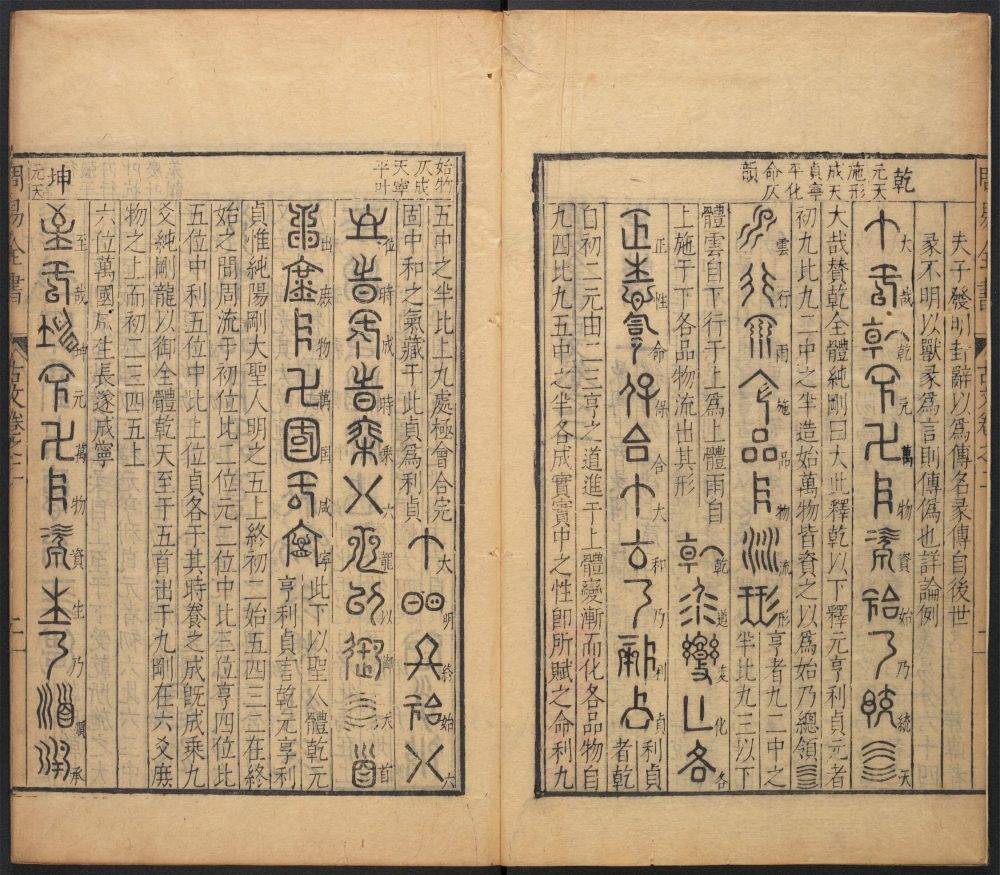 夫子發明卦辭以爲傳名彖傳自後世
彖不明以獸彖爲言則傳僞也詳論例
乾
元天
施形
成天
貞寧
平化
命仄
韻
大哉乾元萬物資始乃統天
大哉贊乾全體純剛曰大此釋乾以下釋元亨利貞元者
初九比九二中之半造始萬物皆資之以爲始乃總領☰
雲行雨施品物流形
亨者九二中之
半比九三以下
體雲自下行于上爲上體雨自
上施于下各品物流出其形
乾道变化各
正性命保合大和乃利貞
利貞
者乾
自初二元由二三亨之道進于上體變漸而化各品物自
九四比九五中之半各成實實中之性卽所賦之命利九
始物
仄成
天寧
平叶
五中之半比上九處極會合完
固中和之氣藏于此貞爲利貞
大明終始六
位時成時乘六龍以御天首
出庻物萬国咸寧
此下以聖人體乾元
亨利貞言乾元亨利
貞惟純陽剛大聖人明之五上終初二始五四三二在終
始之間周流于初位比二位元二位中比三位亨四位比
五位中利五位中比上位貞各于其時養之成旣成乘九
爻純剛龍以御全體乾天至于五首出于九剛在六爻庻
物之上而初二三四五上
六位萬國成生長遂咸寧
坤
元天
至哉坤元萬物資生乃順承
周易全書
古文卷之二
二